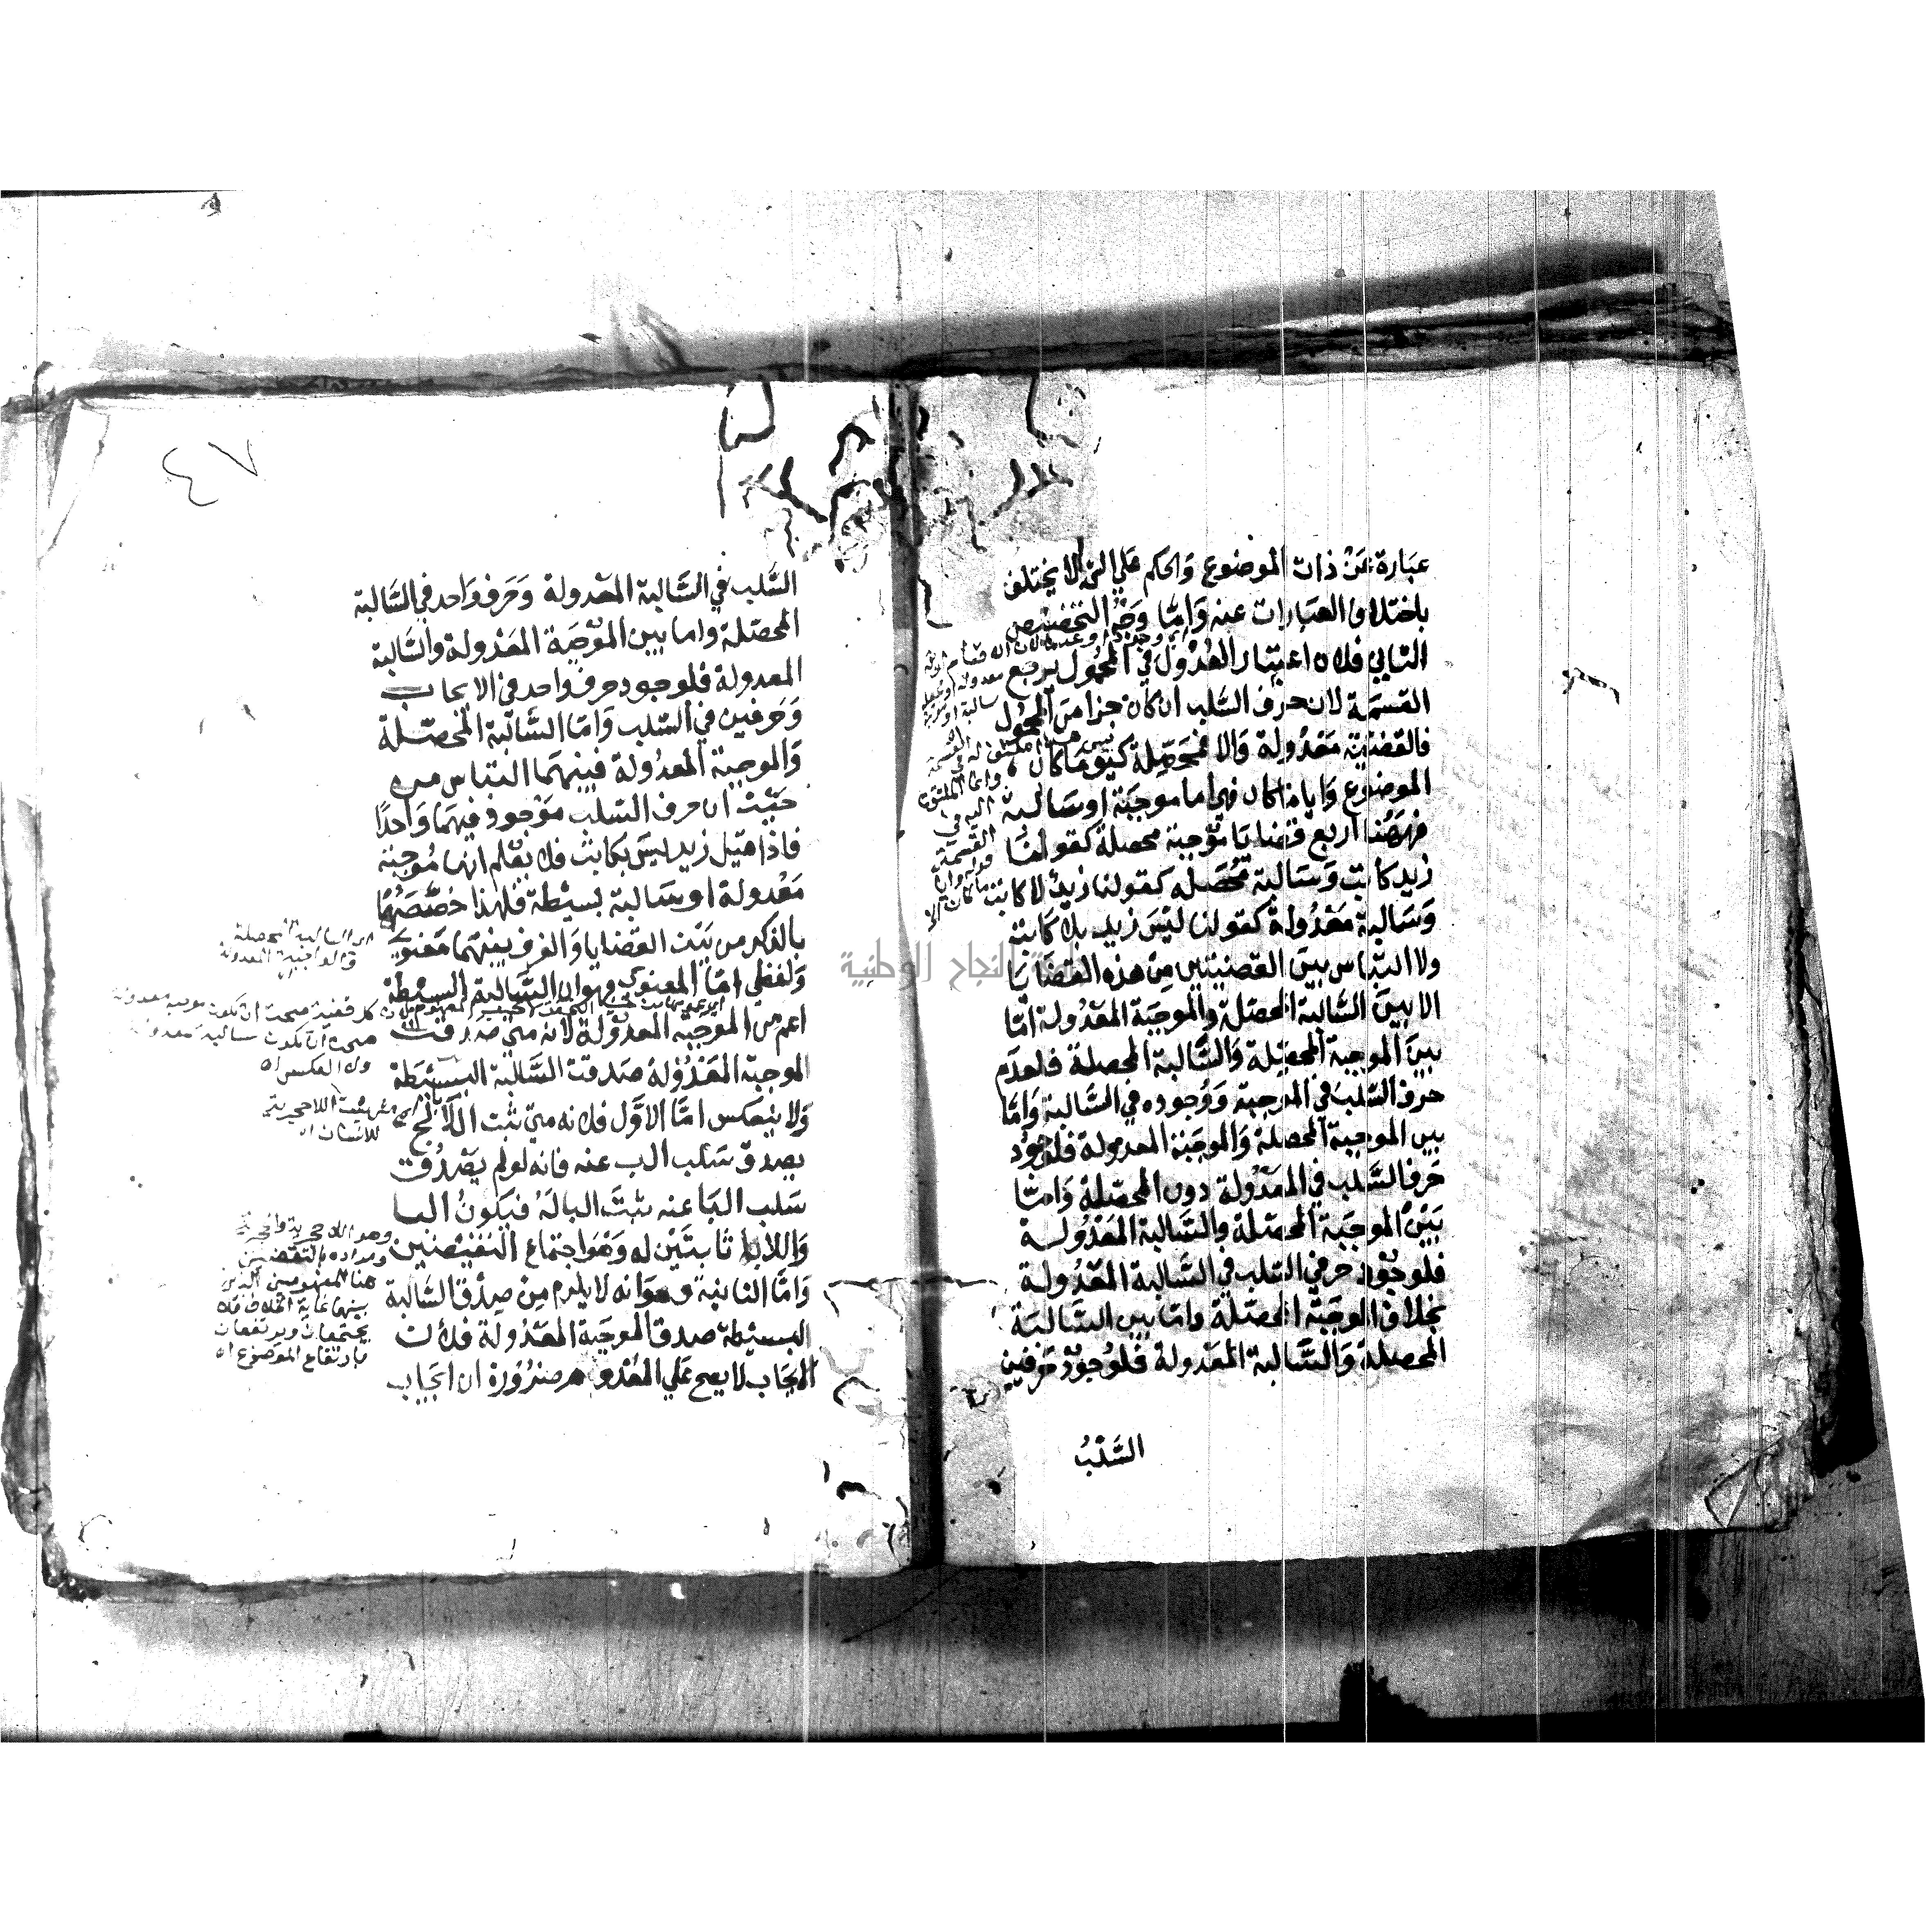 عبارة عن ذات الموضوع والحكم علي الشي لا يختلف
باختلاف العبارات عنه واما وجه التخصيص
الثاني فلان اعتبار العدول في المحمول يربع
القسمة لان حرف السلب ان كان جزا من المحمول
فالقضية معدولة والا فمحصلة كيف ما كان
الموضوع وايا ما كان فهي اما موجبة او سالبة
فههنا اربع قضايا موجبة محصلة كقولنا
زيد كاتب وسالبة محصله كقولنا زيد لا كاتب
وسالبة معدولة كقولنا ليس زيد بلا كاتب
ولا التباس بين القضيتين من هذه القضايا
الا بين السالبة المحصلة والموجبة المعدولة اما
بين الموجبة المحصلة والسالبة المحصلة فلعدم
حرف السلب في الموجبة ووجوده في السالبة واما
بين الموجبة المحصلة والموجبة المعدولة فلوجود
حرف السلب في المعدولة دون المحصلة واما
بين الموجبة المحصلة والسالبة المعدولة
فلوجود حرفي السلب في السالبة المعدولة
بخلاف الموجبة المحصلة واما بين السالبة
المحصلة والسالبة المعدولة فلوجود حرفين
السلب
٤٧
السلب في السالبة المعدولة وحرف واحد في السالبة
المحصلة واما بين الموجبة المعدولة والسالبة
المعدولة فلوجود حرف واحد في الايجاب
وحرفين في السلب واما السالبة المحصلة
والموجبة المعدولة فبينهما التباس من
حيث ان حرف السلب موجود فيهما واحدا
فاذا قيل زيد ليس بكاتب فلا يعلم انها موجبة
معدولة او سالبة بسيطة فلهذا خصصهما
بالذكر من بين القضايا والفرق بينهما معنوي
ولفظي اما المعنوي فهو ان السالبة البسيطة
اعم من الموجبة المعدولة لانه متي صدقت
الموجبة المعدولة صدقت السالبة البسيطة
ولا ينعكس اما الاول فلانه متي ثبت اللا ب لج
يصدق سلب الب عنه فانه لو لم يصدق
سلب البا عنه ثبت البا له فيكون البا
واللابا ثابتين له وهو اجتماع النقيضين
واما الثانية وهو انه لا يلزم من صدق السالبة
البسيطة صدق الموجبة المعدولة فلان
الايجاب لا يصح علي المعدوم ضرورة ان ايجاب
اي السالبة المحصلة
والموجبة المعدولة
وهو اللاحجرية والحجرية
ومراده بالنقيضين
هنا المفهومين الذين
بينهما غاية الخلاف فلا
يجتمعان ويرتفعان
بارتفاع الموضوع اه